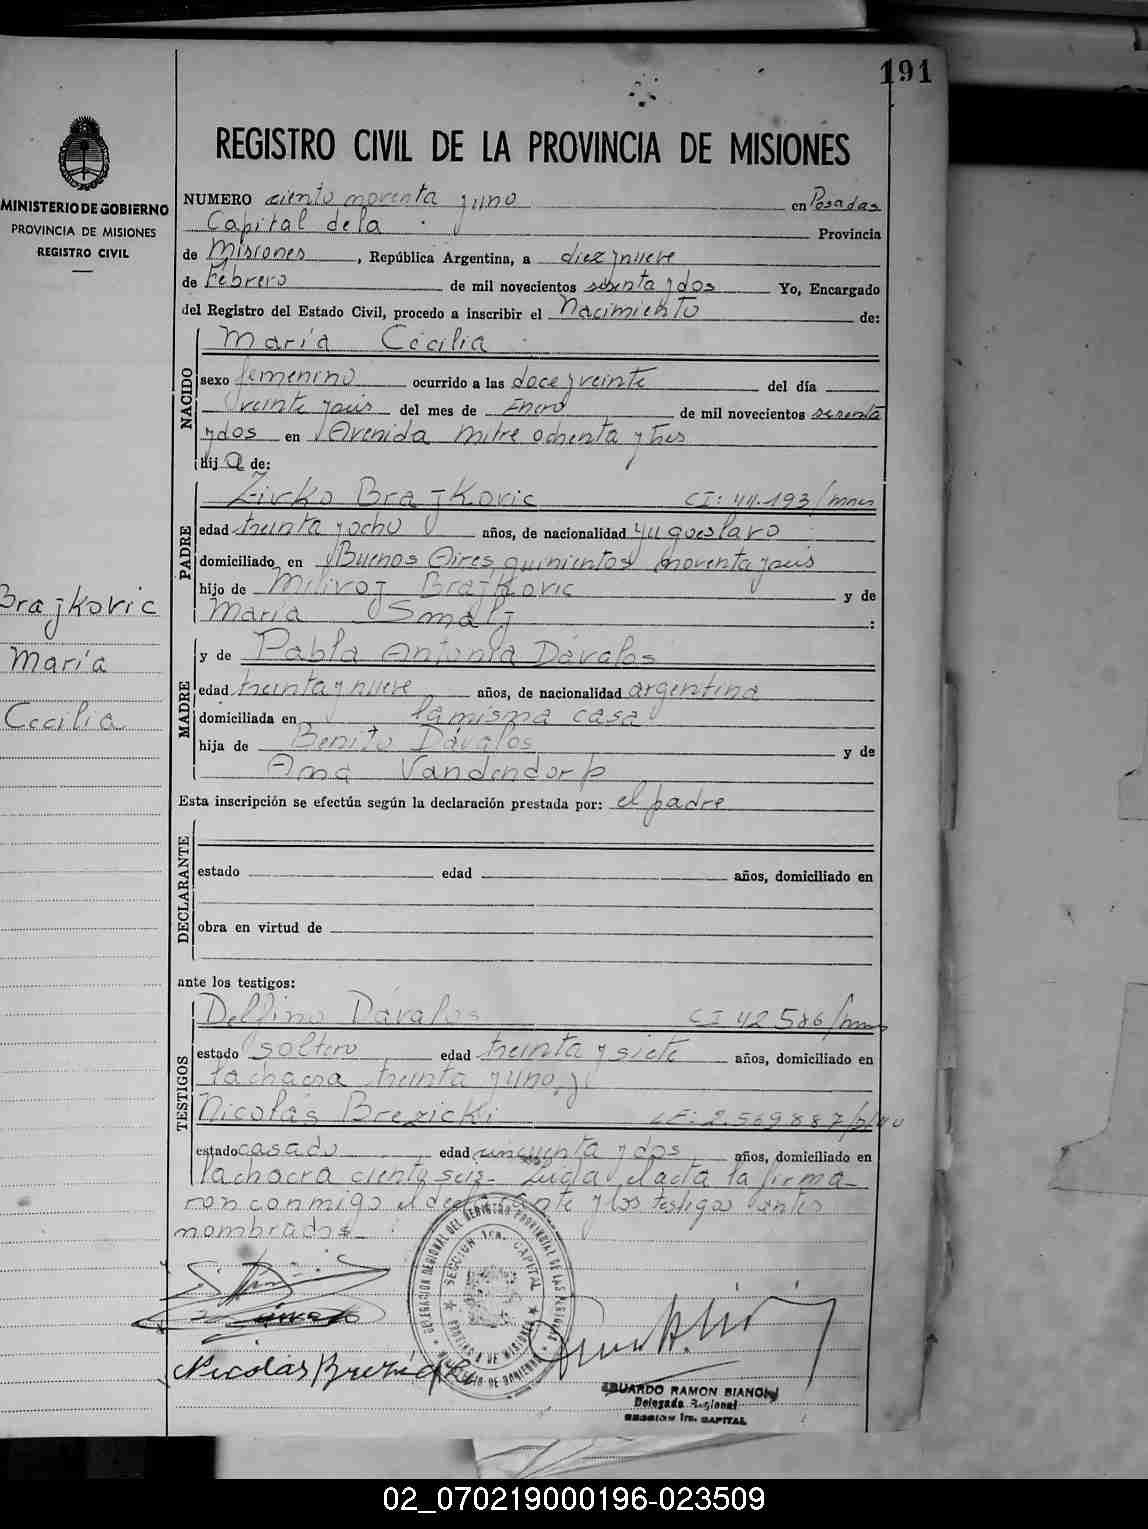 191
REGISTRO CIVIL DE LA PROVINCIA DE MISIONES
MINISTERIO DE GOBIERNO
PROVINCIA DE MISIONES
REGISTRO CIVIL
NUMERO ciento noventa y uno en Posadas
Capital de la Provincia
de Misiones, República Argentina, a diez y nueve
de Febrero de mil novecientos sesenta y dos Yo, Encargado
del Registro del Estado Civil, procedo a inscribir el Nacimiento de:
NACIDO
María Cecilia
sexo femenino ocurrido a las doce y veinte del día
veinte y seis del mes de Enero de mil novecientos sesenta
y dos en Avenida Mitre ochenta y tres
hija de:
PADRE
Zivko Brajkovic CI: 44.193/mnes
edad treinta y ocho años, de nacionalidad yugoeslavo
domiciliado en Buenos Aires quinientos noventa y seis
hijo de Milivoj Brajkovic y de
María Smalj :
Brajkovic
María
Cecilia
MADRE
y de Pabla Antonia Dávalos
edad treinta y nueve años, de nacionalidad argentina
domiciliada en la misma casa
hija de Benito Dávalos y de
Ana Vandendorp
Esta inscripción se efectúa según la declaración prestada por: el padre
DECLARANTE
estado edad años, domiciliado en
obra en virtud de
ante los testigos:
TESTIGOS
Delfino Dávalos CI 42.586/mnes
estado soltero edad treinta y siete años, domiciliado en
la chacra treinta y uno, y
Nicolás Brezicki LE: 2.569.887
estado casado edad cincuenta y dos años, domiciliado en
la chacra ciento seis- Leída el acta la firma-
ron conmigo el declarante y los testigos antes
nombrados.-
DELEGACION REGIONAL DEL REGISTRO PROVINCIAL DE LAS PERSONAS
SECCION 1ra. CAPITAL
PROVINCIA DE MISIONES
Nicolás Brezicki
EDUARDO RAMON BIANCHI
Delegado Regional
SECCION 1ra. CAPITAL
02_070219000196-023509